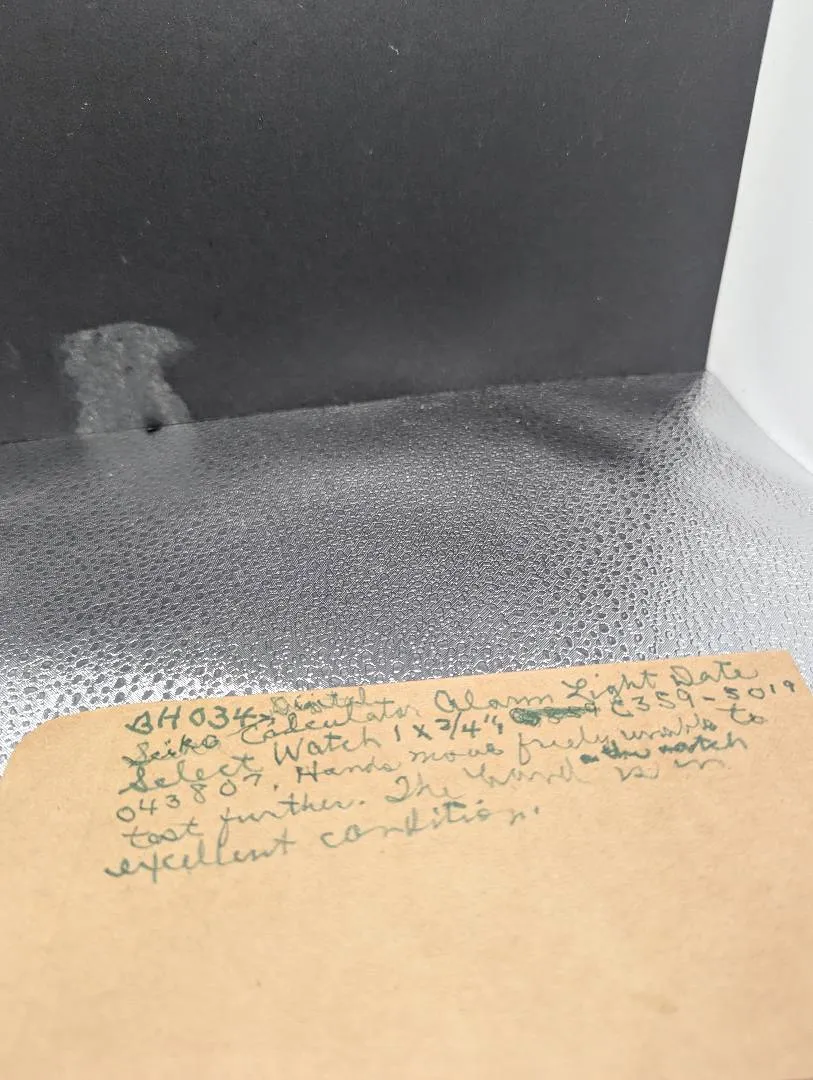 BH034
Seiko Digital Calculator Alarm Light Date
Select Watch 1 x 3/4", C359-5019
043807. Hands move freely unable to
test further. The band on the watch is in
excellent condition.